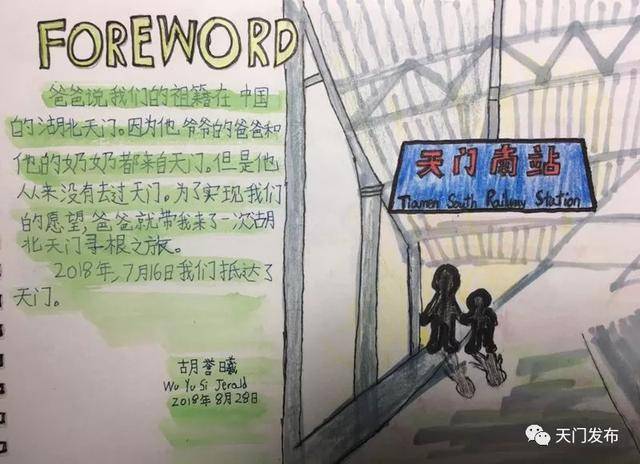 FOREWORD
爸爸说我们的祖籍在中国
的湖北天门。因为他爷爷的爸爸和
他的奶奶都来自天门。但是他
从来没有去过天门。为了实现我们
的愿望,爸爸就带我来了一次湖
北天门寻根之旅。
2018年,7月16日我们抵达了
天门。
胡誉曦
Wu Yu Si Jerald
2018年8月28日
天门南站
Tianmen South Railway Station
天门发布